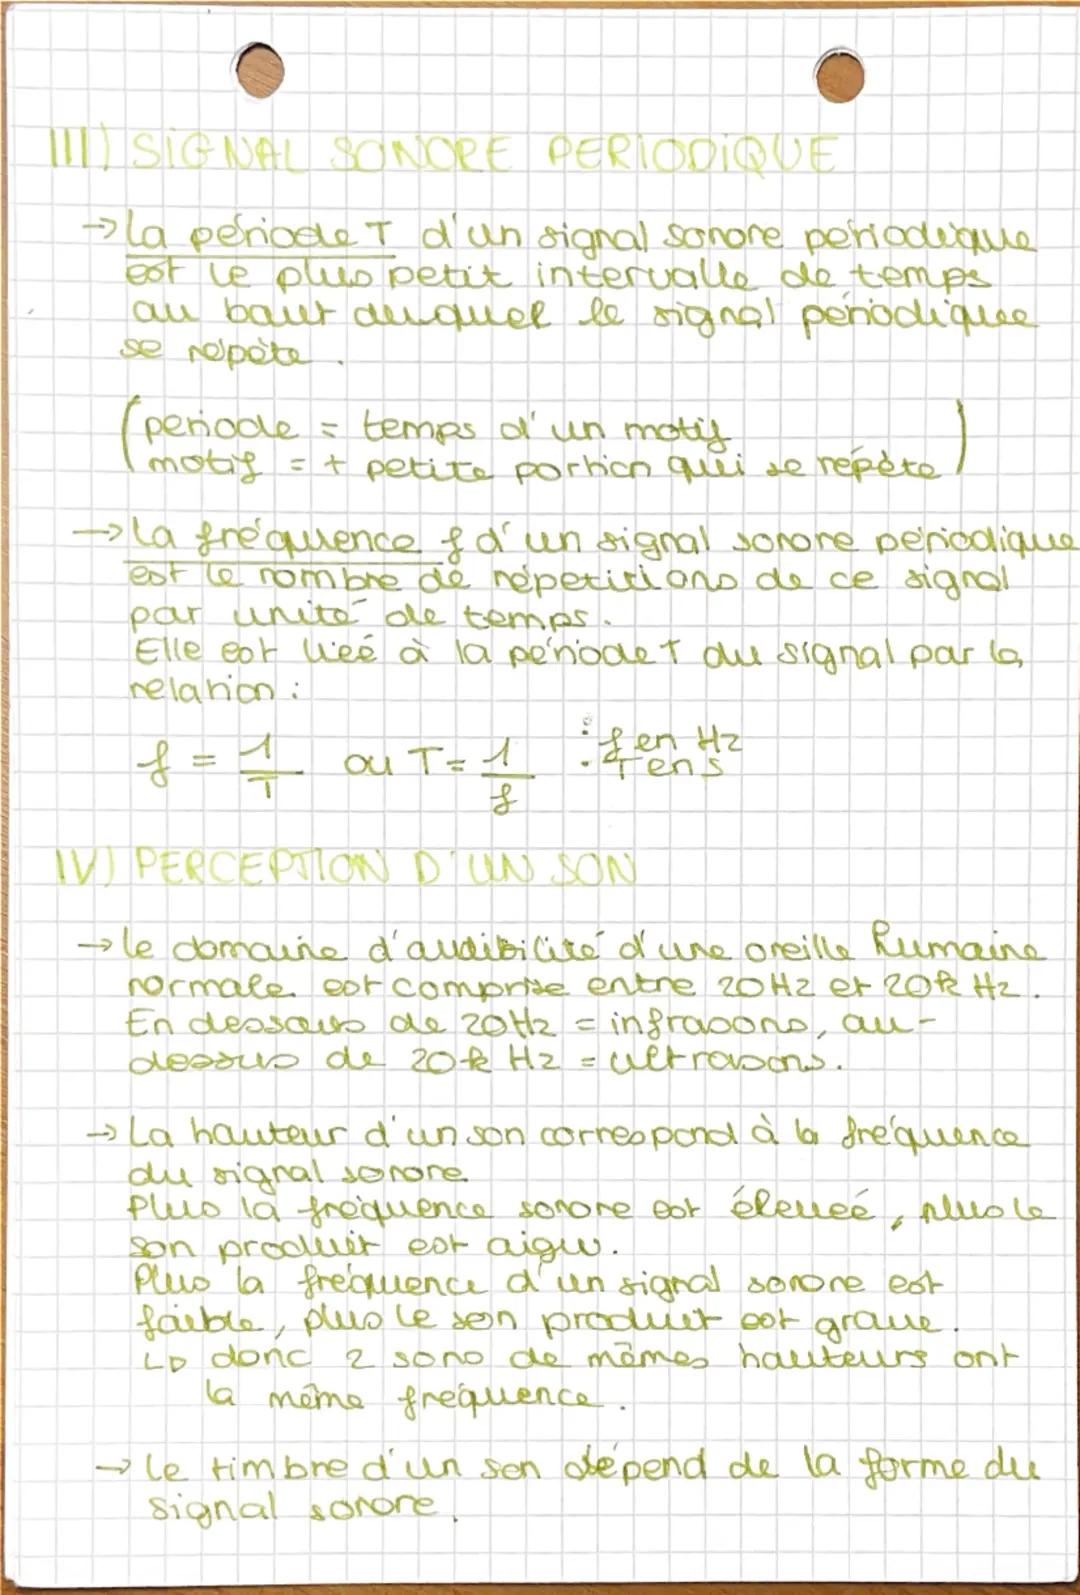 III) SIGNAL SONORE PERIODIQUE
→ La période T d'un signal sonore périodique
est le plus petit intervalle de temps
au bout duquel le signal périodique
se répète.
(periode = temps d'un motif
motif = + petite portion qui se répète)
→ La fréquence f d'un signal sonore périodique
est le nombre de répetitions de ce signal
par unité de temps.
Elle est liée à la période T du signal par la
relation :
f = 1/T ou T = 1/f : f en Hz
T en s
IV) PERCEPTION D'UN SON
→ le domaine d'audibilité d'une oreille humaine
normale est comprise entre 20Hz et 20k Hz.
En dessous de 20Hz = infrasons, au-
dessus de 20k Hz = ultrasons.
→ La hauteur d'un son correspond à la fréquence
du signal sonore
Plus la fréquence sonore est élevée, plus le
son produit est aigu.
Plus la fréquence d'un signal sonore est
faible, plus le son produit est grave.
↳ donc 2 sons de mêmes hauteurs ont
la même fréquence.
→ Le timbre d'un son dépend de la forme du
signal sonore.